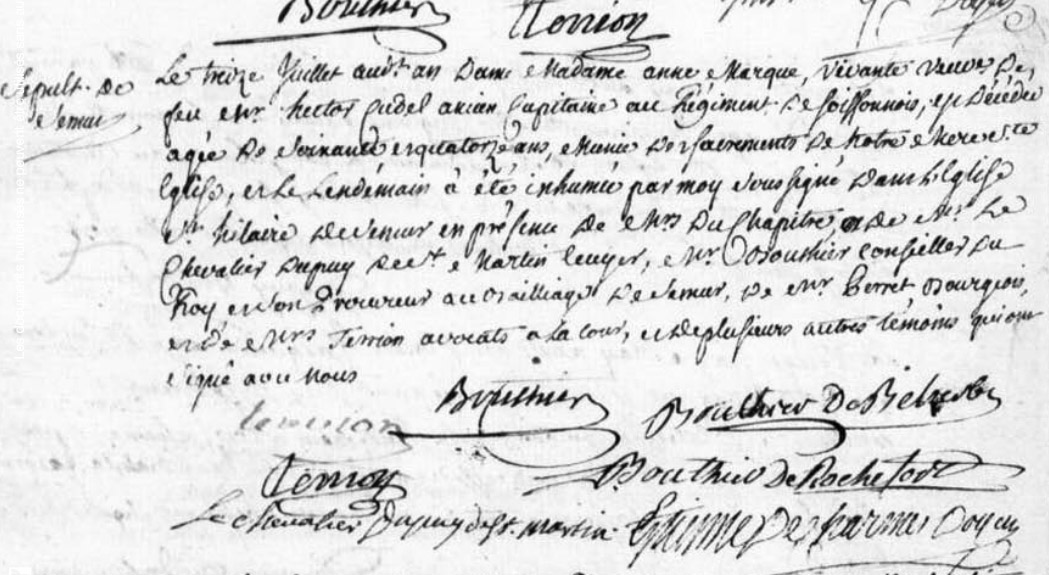 Bouthier
Terrion
Sepult. De
Semur
Le treize Juillet aud.t an Dame Madame anne Marque, vivante veuve De
feu Mr. hector ancien Capitaine au Régiment De Soissonnois, est Décédée
agée De Soixante et quatorze ans, Munie Des sacrements De Notre Mere S.te
Eglise, et Le Lendemain à été inhumée par moy Soussigné Dans L'Eglise
St. hilaire De Semur en présence De Mrs Du Chapitre, et De Mr. Le
Chevalier Dupuy De St. Martin Ecuyer, Mr. Bouthier conseiller Du
Roy et Son Procureur au Bailliage De Semur, De Mr. Perret Bourgeois,
et De Mrs Terrion avocats a la Cour, et De plusieurs autres témoins qui ont
Signé avec Nous
Bouthier
Bouthier De
Terrion
Bouthier De Rochefort
Le chevalier Dupuy de St. martin
Doyen